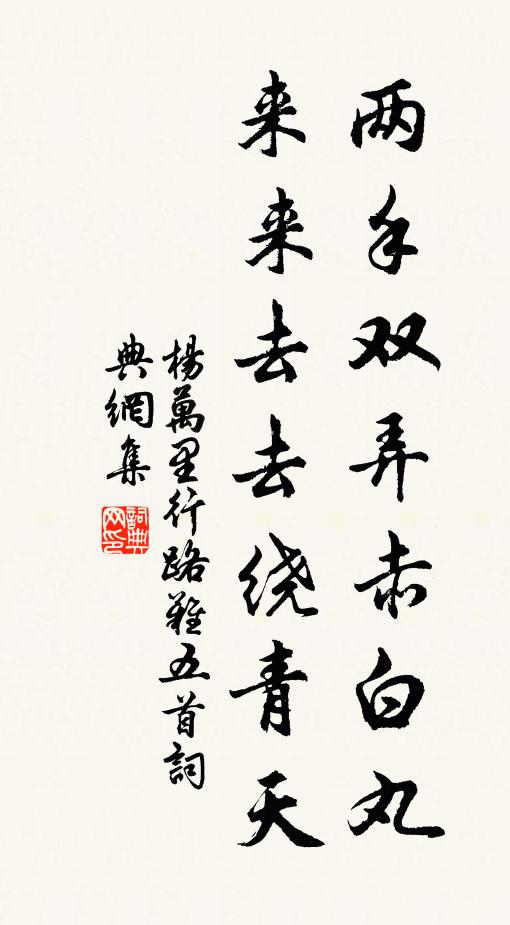 两手双弄赤白丸
来来去去绕青天
楊萬里行路難五首詞
典網集
詞典
网印